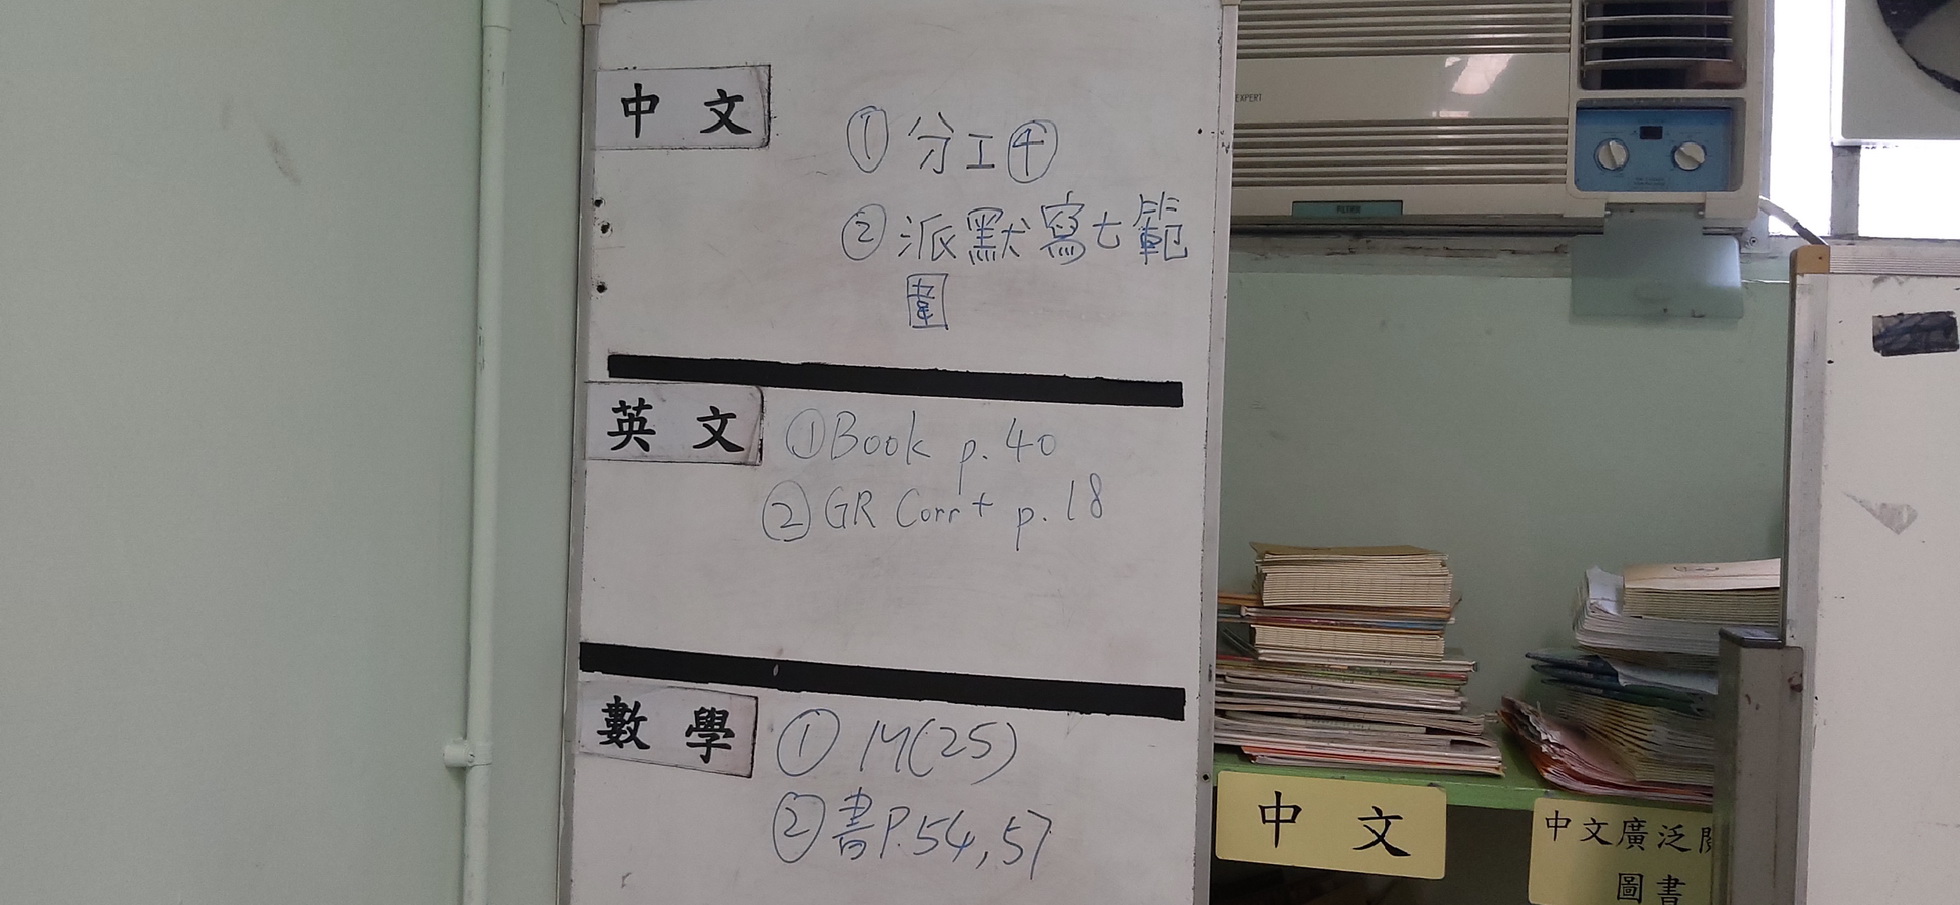 中文
① 分工④
② 派默寫七範
圍
英文
①Book p.40
② GR Corr+ p.18
數學
① M(25)
② 書P.54,57
EXPERT
FILTER
中文
中文廣泛閱
圖書